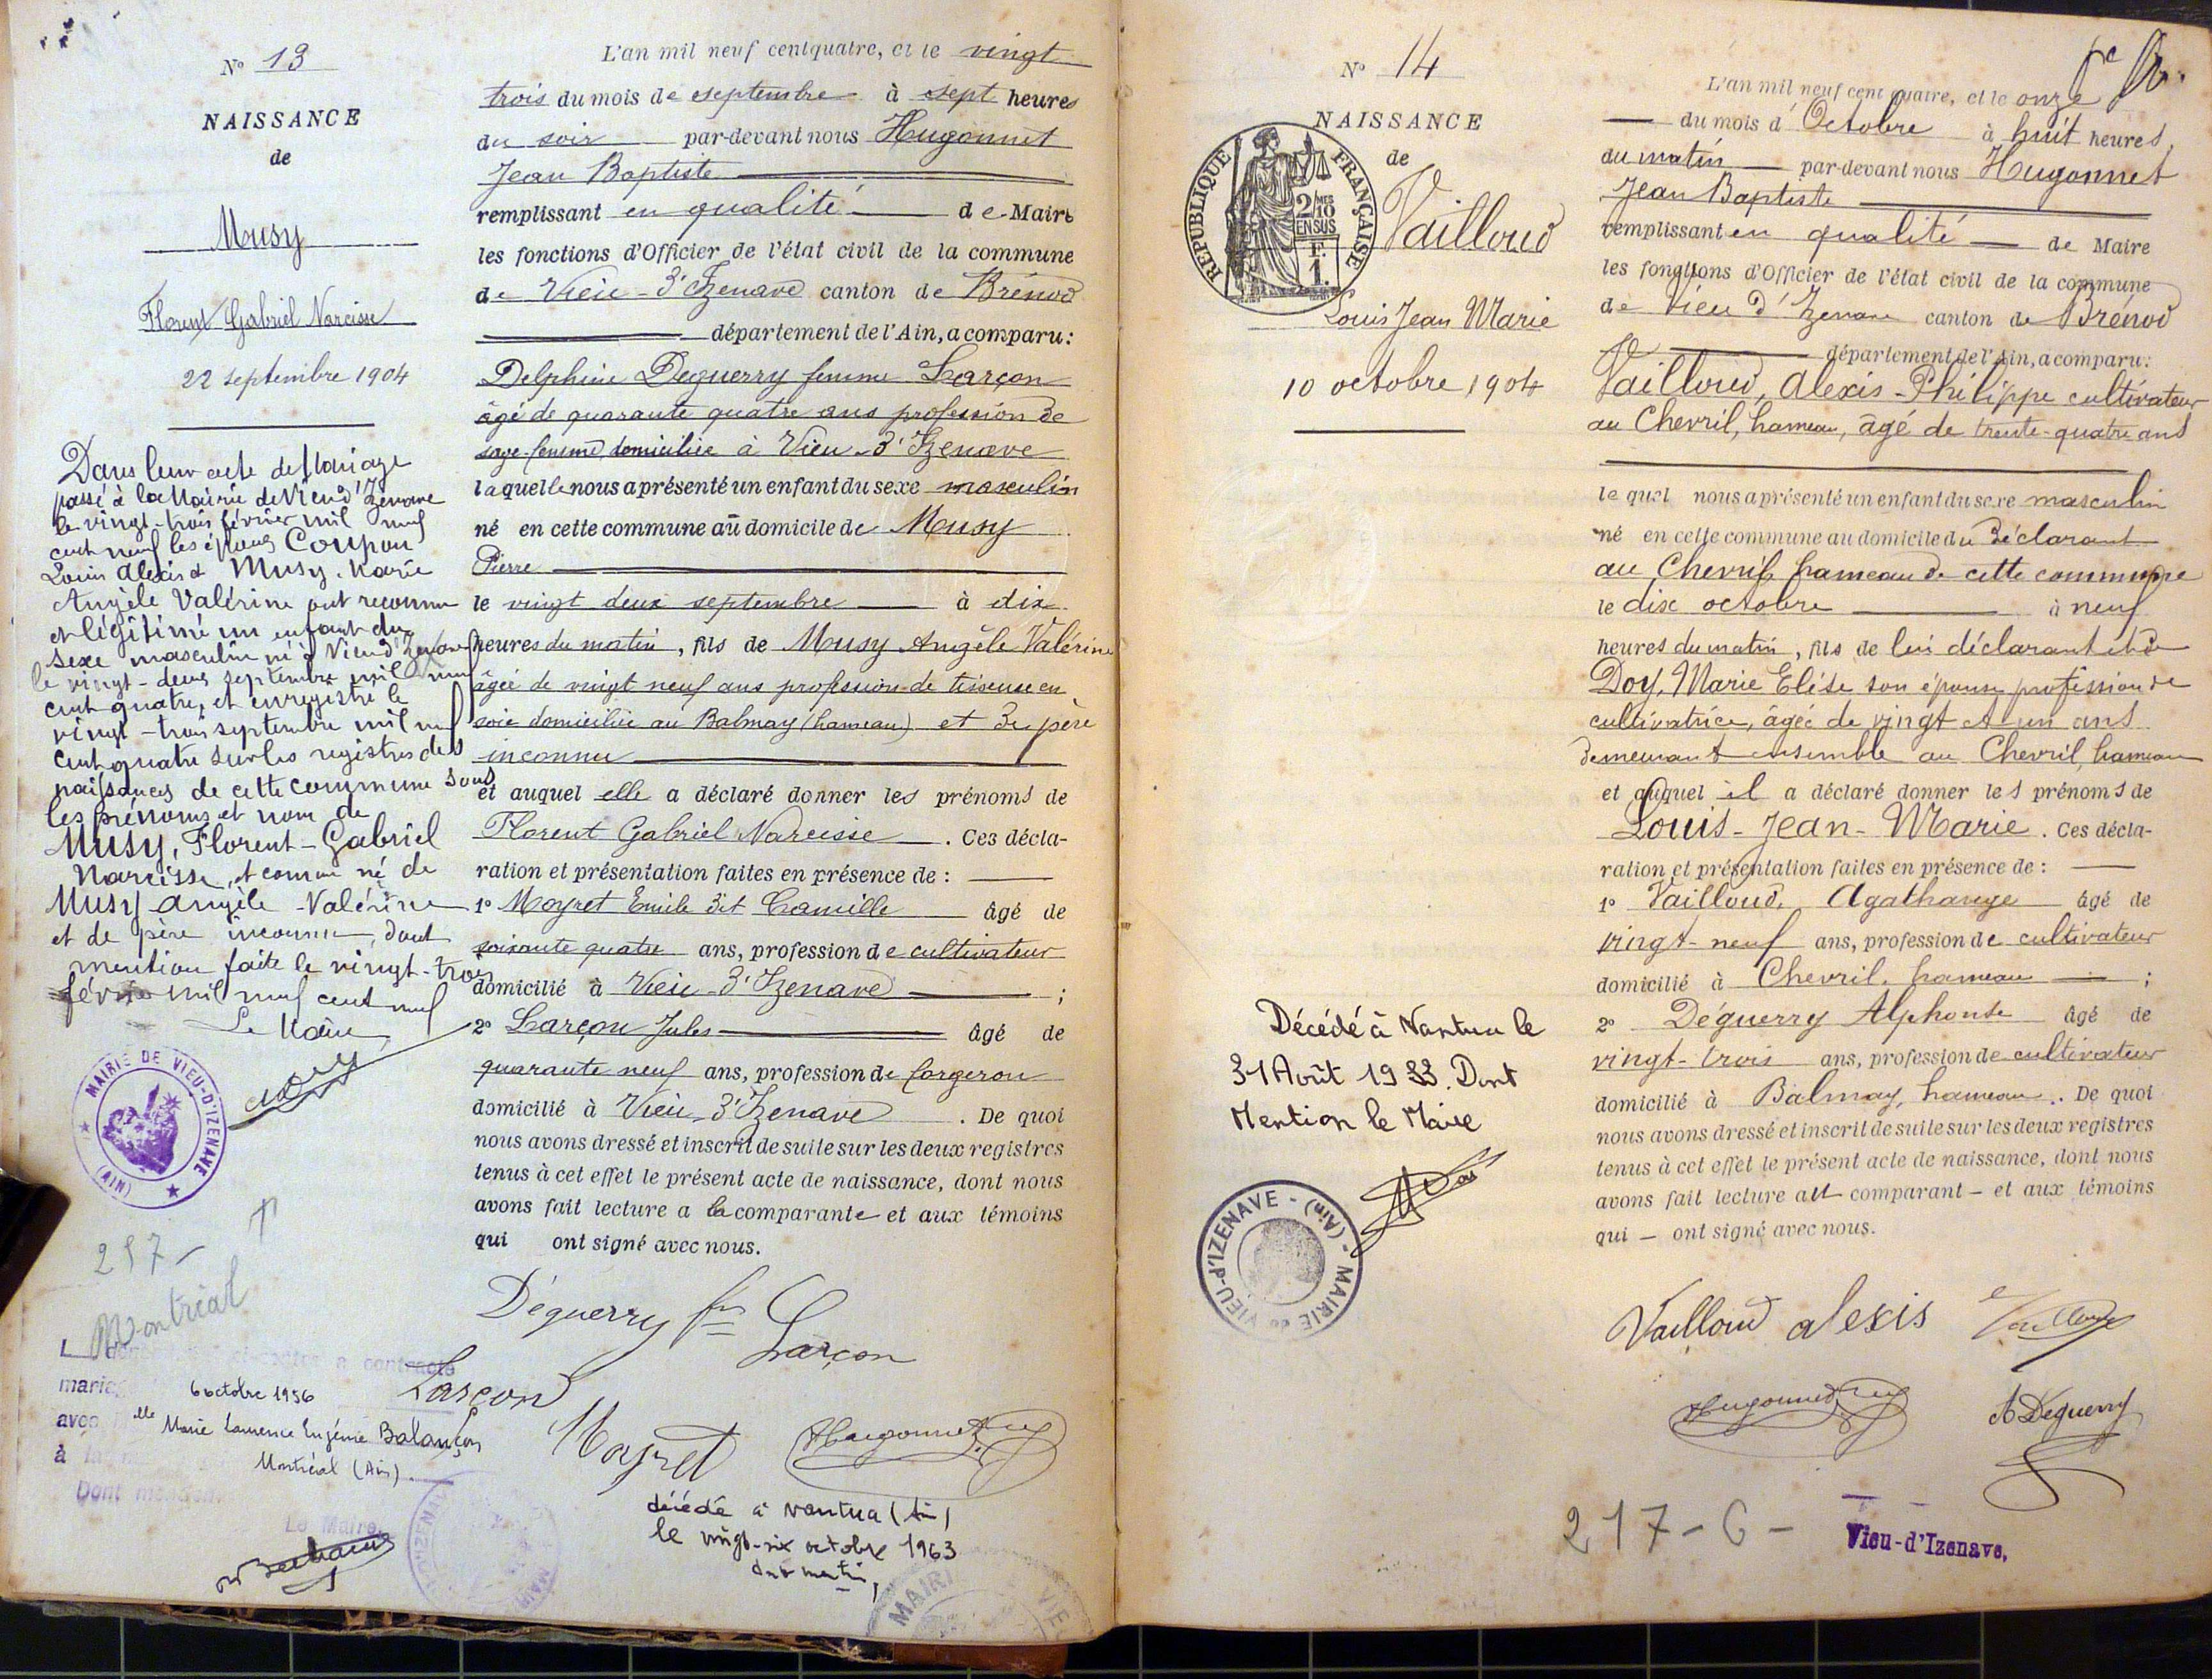 N° 13
NAISSANCE
de
Musy
Florent Gabriel Narcisse
22 septembre 1904
Dans leur acte de Mariage
passé à la Mairie de Vieu d'Izenave
le vingt-trois février mil neuf
cent neuf les époux Coupon
Louis Alexis et Musy. Marie
Angèle Valérine ont reconnu
et légitimé un enfant du
sexe masculin né à Vieu d'Izenave
le vingt-deux septembre mil neuf
cent quatre, et enregistré le
vingt-trois septembre mil neuf
cent quatre sur les registres des
naissances de cette commune sous
les prénoms et nom de
Musy, Florent-Gabriel
Narcisse, et comme né de
Musy Angèle-Valérine
et de père inconnu, dont
mention faite le vingt-trois
février mil neuf cent neuf
Le Maire
MAIRIE DE VIEU-D'IZENAVE
(AIN)
217-
Montréal
a contracté
maria
6 octobre 1956
avec Melle Marie Laurence Eugénie Balançon
à la m
Montréal (Ain).
Dont mention.
Le Maire,
L'an mil neuf cent quatre, et le vingt
trois du mois de septembre à sept heures
du soir par-devant nous Hugonnet
Jean Baptiste
remplissant en qualité de Maire
les fonctions d'Officier de l'état civil de la commune
de Vieu-d'Izenave canton de Brénod
département de l'Ain, a comparu:
Delphine Deguerry femme Larçon
âgé de quarante quatre ans profession de
sage-femme domiciliée à Vieu-d'Izenave
laquelle nous a présenté un enfant du sexe masculin
né en cette commune au domicile de Musy
Pierre
le vingt deux septembre à dix
heures du matin, fils de Musy Angèle Valérine
âgée de vingt neuf ans profession de tisseuse en
soie domiciliée au Balmay (hameau) et de père
inconnu
et auquel elle a déclaré donner les prénoms de
Florent Gabriel Narcisse. Ces décla-
ration et présentation faites en présence de :
1° Moyret Emile dit Camille âgé de
soixante quatre ans, profession de cultivateur
domicilié à Vieu-d'Izenave ;
2° Larçon Jules âgé de
quarante neuf ans, profession de forgeron
domicilié à Vieu-d'Izenave. De quoi
nous avons dressé et inscrit de suite sur les deux registres
tenus à cet effet le présent acte de naissance, dont nous
avons fait lecture a la comparante et aux témoins
qui ont signé avec nous.
Déguerry fme Larçon
Larçon
Moyret
Hugonnet
décédé à Nantua (Ain)
le vingt-six octobre 1963
MAIRI
VIE
N° 14
NAISSANCE
de
REPUBLIQUE FRANÇAISE
2/10MES
EN SUS
F.
1.
Vailloud
Louis Jean Marie
10 octobre 1904
Décédé à Nantua le
31 Août 1983. Dont
Mention le Maire
MAIRIE de VIEU-d'IZENAVE - (Ain) -
L'an mil neuf cent quatre, et le onze
du mois d'Octobre à huit heures,
du matin par-devant nous Hugonnet
Jean Baptiste
remplissant en qualité de Maire
les fonctions d'Officier de l'état civil de la commune
de Vieu d'Izenave canton de Brénod
département de l'Ain, a comparu:
Vailloud, Alexis-Philippe cultivateur
au Chevril, hameau, âgé de trente-quatre ans
le quel nous a présenté un enfant du sexe masculin
né en cette commune au domicile du déclarant
au Chevril hameau de cette commune
le dix octobre à neuf
heures du matin, fils de lui déclarant et de
Doy, Marie Elise son épouse profession de
cultivatrice, âgée de vingt et un ans
demeurant ensemble au Chevril, hameau
et auquel il a déclaré donner les prénoms de
Louis-Jean-Marie. Ces décla-
ration et présentation faites en présence de :
1° Vailloud, Agathange âgé de
vingt-neuf ans, profession de cultivateur
domicilié à Chevril. hameau ;
2° Déguerry Alphonse âgé de
vingt-trois ans, profession de cultivateur
domicilié à Balmay, hameau. De quoi
nous avons dressé et inscrit de suite sur les deux registres
tenus à cet effet le présent acte de naissance, dont nous
avons fait lecture au comparant - et aux témoins
qui - ont signé avec nous.
Vailloud alexis
Vailloud
Hugonnet
A Deguerry
217-6-
Vieu-d'Izenave.